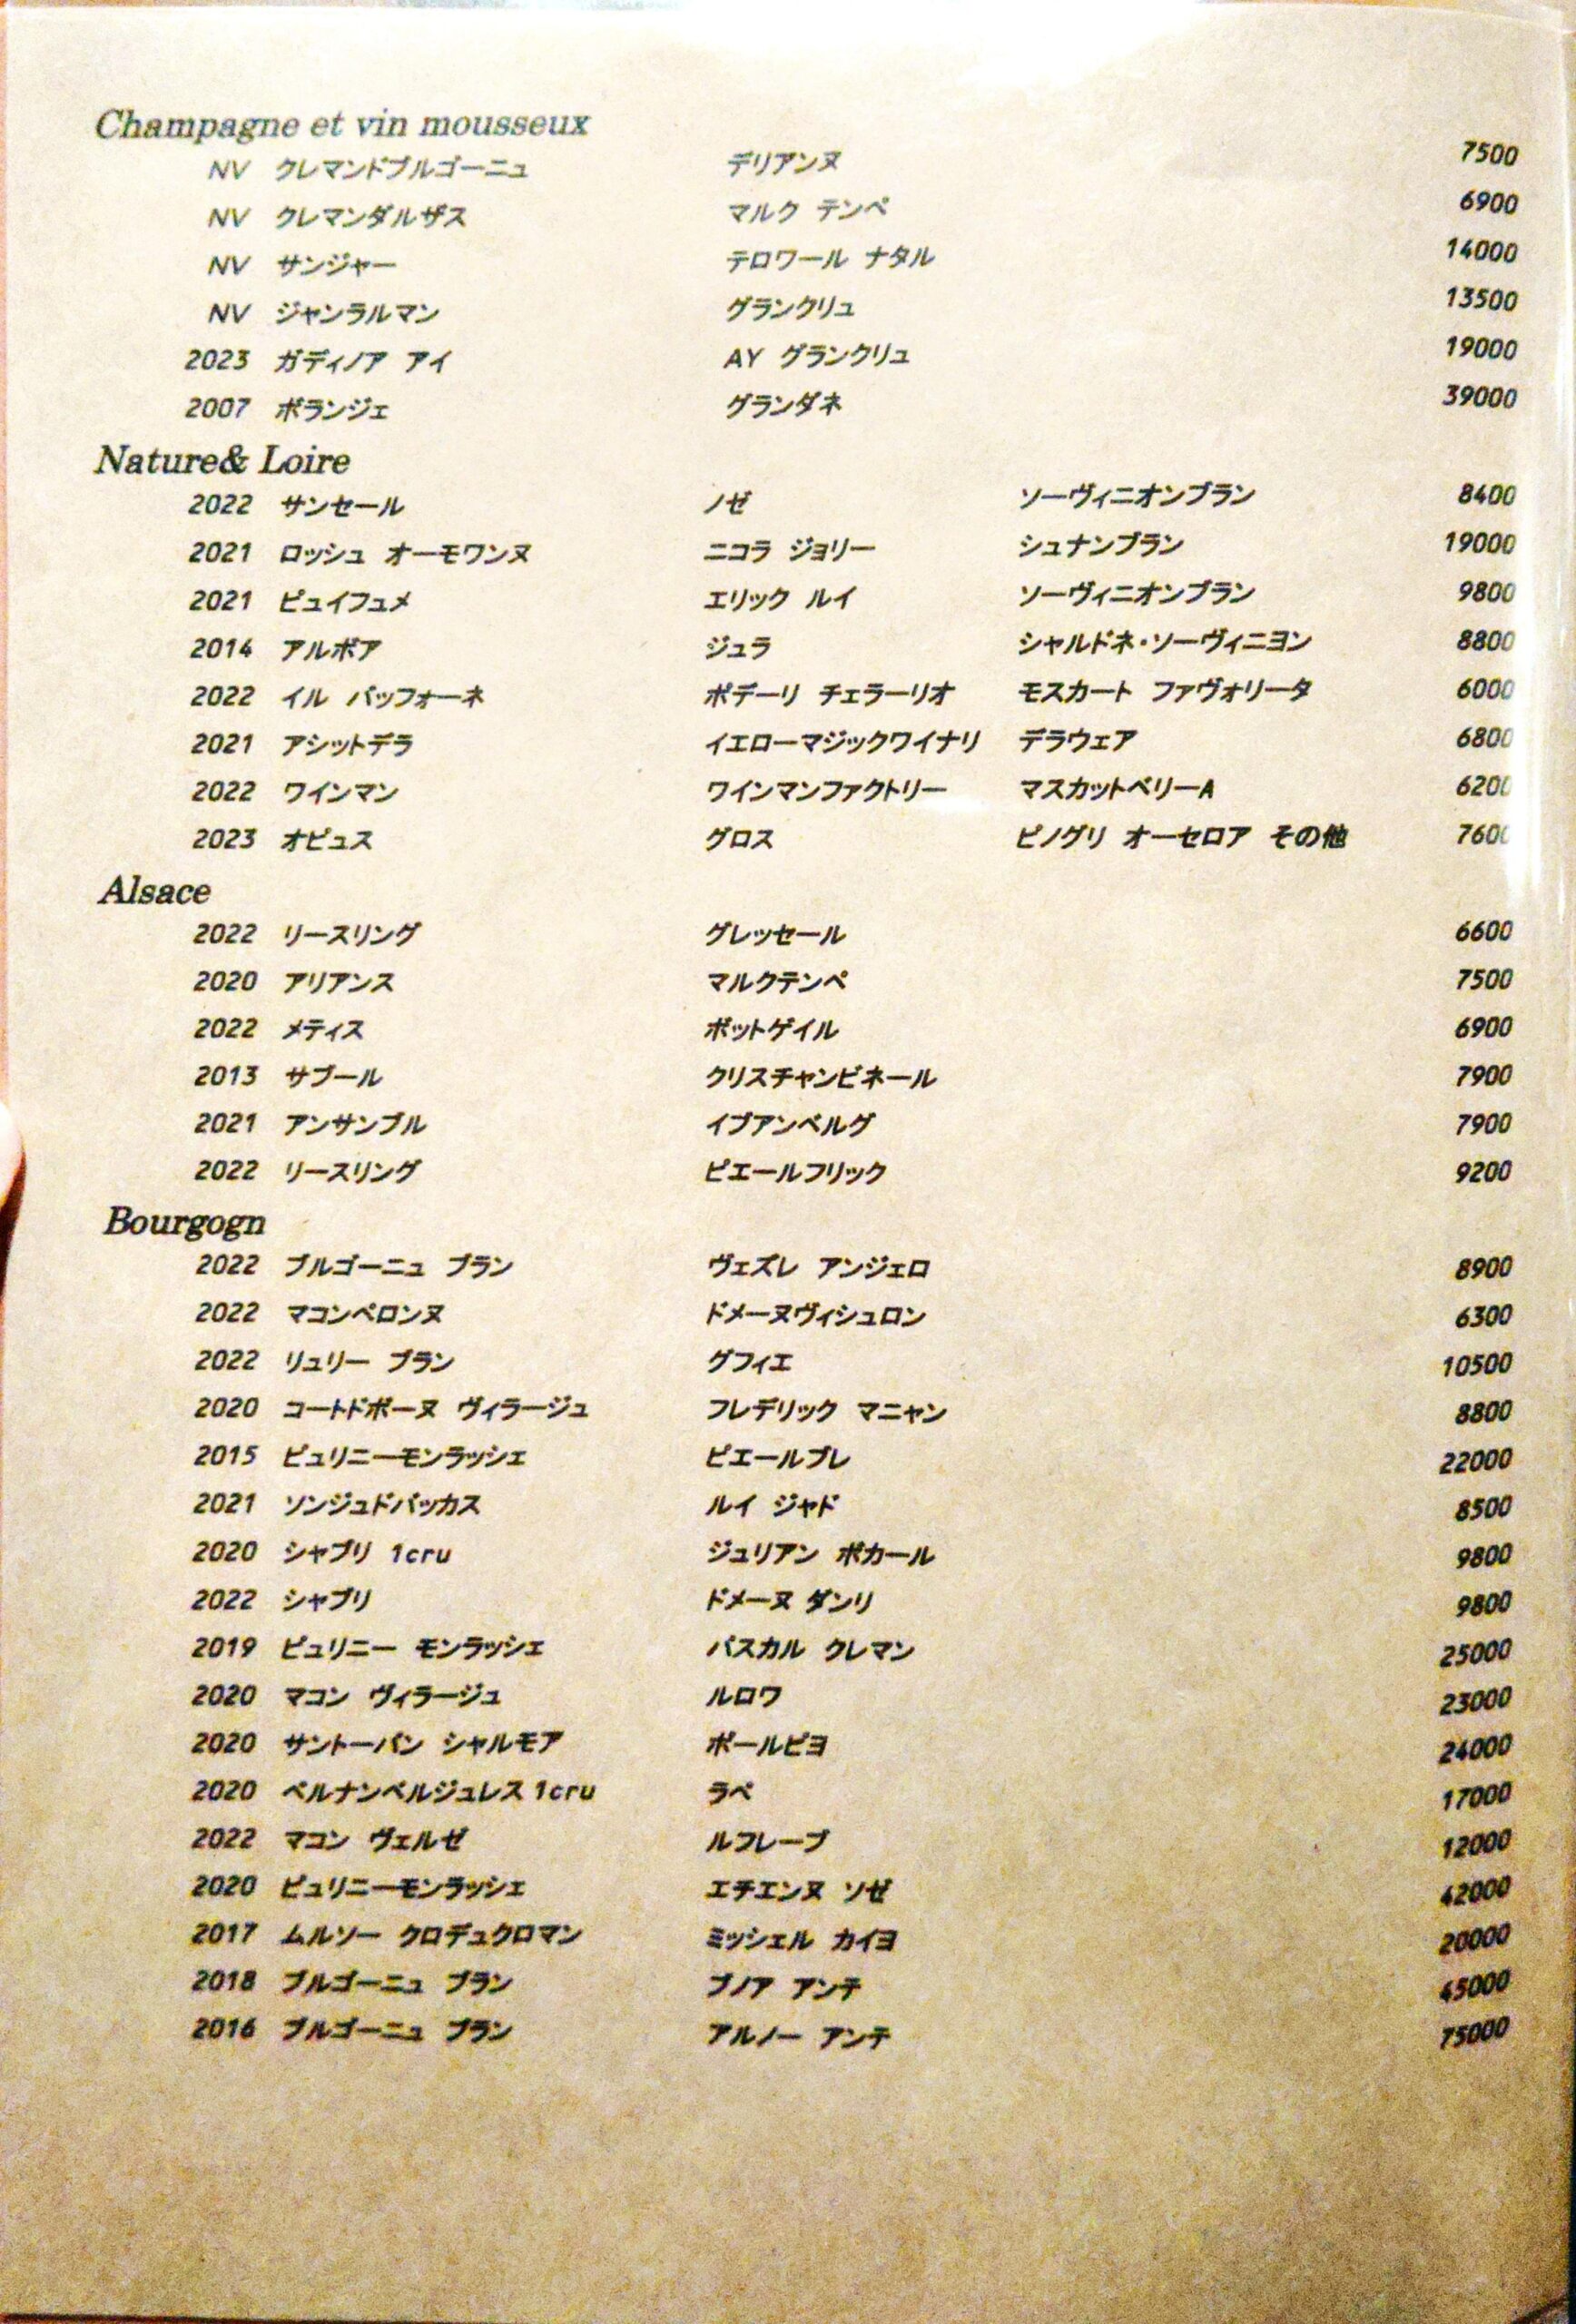 Champagne et vin mousseux
NV クレマンドブルゴーニュ デリアンヌ 7500
NV クレマンダルザス マルク テンペ 6900
NV サンジャー テロワール ナタル 14000
NV ジャンラルマン グランクリュ 13500
2023 ガディノア アイ AY グランクリュ 19000
2007 ボランジェ グランダネ 39000
Nature& Loire
2022 サンセール ノゼ ソーヴィニオンブラン 8400
2021 ロッシュ オーモワンヌ ニコラ ジョリー シュナンブラン 19000
2021 ピュイフュメ エリック ルイ ソーヴィニオンブラン 9800
2014 アルボア ジュラ シャルドネ・ソーヴィニヨン 8800
2022 イル バッフォーネ ポデーリ チェラーリオ モスカート ファヴォリータ 6000
2021 アシットデラ イエローマジックワイナリ デラウェア 6800
2022 ワインマン ワインマンファクトリー マスカットベリーA 6200
2023 オピュス グロス ピノグリ オーセロア その他 7600
Alsace
2022 リースリング グレッセール 6600
2020 アリアンス マルクテンペ 7500
2022 メティス ボットゲイル 6900
2013 サブール クリスチャンビネール 7900
2021 アンサンブル イブアンベルグ 7900
2022 リースリング ピエールフリック 9200
Bourgogn
2022 ブルゴーニュ ブラン ヴェズレ アンジェロ 8900
2022 マコンペロンヌ ドメーヌヴィシュロン 6300
2022 リュリー ブラン グフィエ 10500
2020 コートドボーヌ ヴィラージュ フレデリック マニャン 8800
2015 ピュリニーモンラッシェ ピエールブレ 22000
2021 ソンジュドバッカス ルイ ジャド 8500
2020 シャブリ 1cru ジュリアン ボカール 9800
2022 シャブリ ドメーヌ ダンリ 9800
2019 ピュリニー モンラッシェ パスカル クレマン 25000
2020 マコン ヴィラージュ ルロワ 23000
2020 サントーバン シャルモア ポールピヨ 24000
2020 ペルナンベルジュレス 1cru ラペ 17000
2022 マコン ヴェルゼ ルフレーブ 12000
2020 ピュリニーモンラッシェ エチエンヌ ソゼ 42000
2017 ムルソー クロデュクロマン ミッシェル カイヨ 20000
2018 ブルゴーニュ ブラン ブノア アンテ 45000
2016 ブルゴーニュ ブラン アルノー アンテ 75000